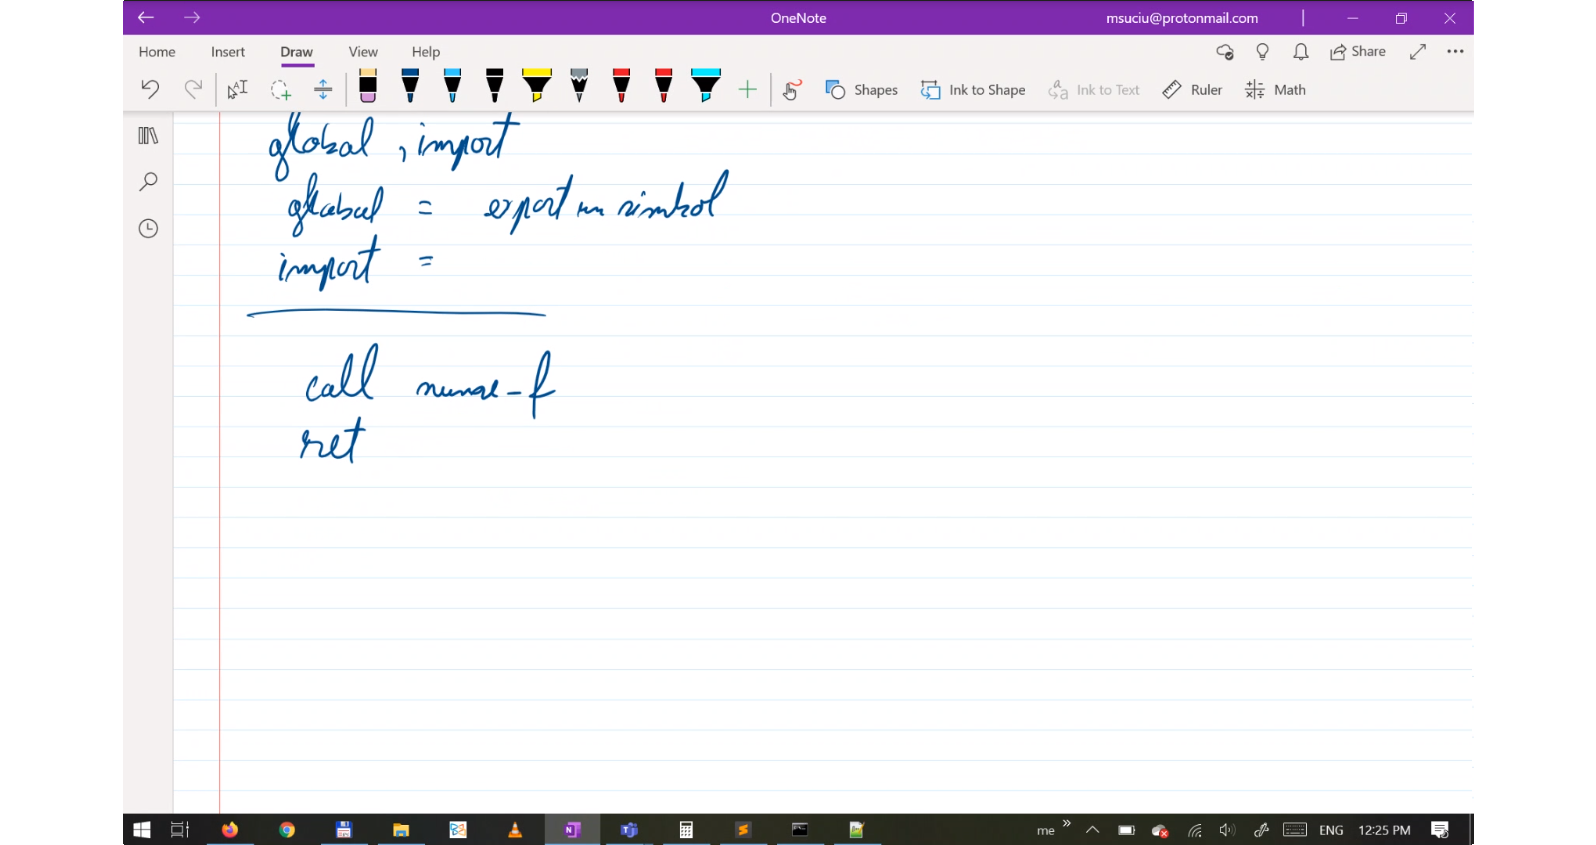 OneNote
msuciu@protonmail.com
Home Insert Draw View Help
Share
Shapes Ink to Shape Ink to Text Ruler Math
global , import
global = export un simbol
import =
call nume_f
ret
me ENG 12:25 PM